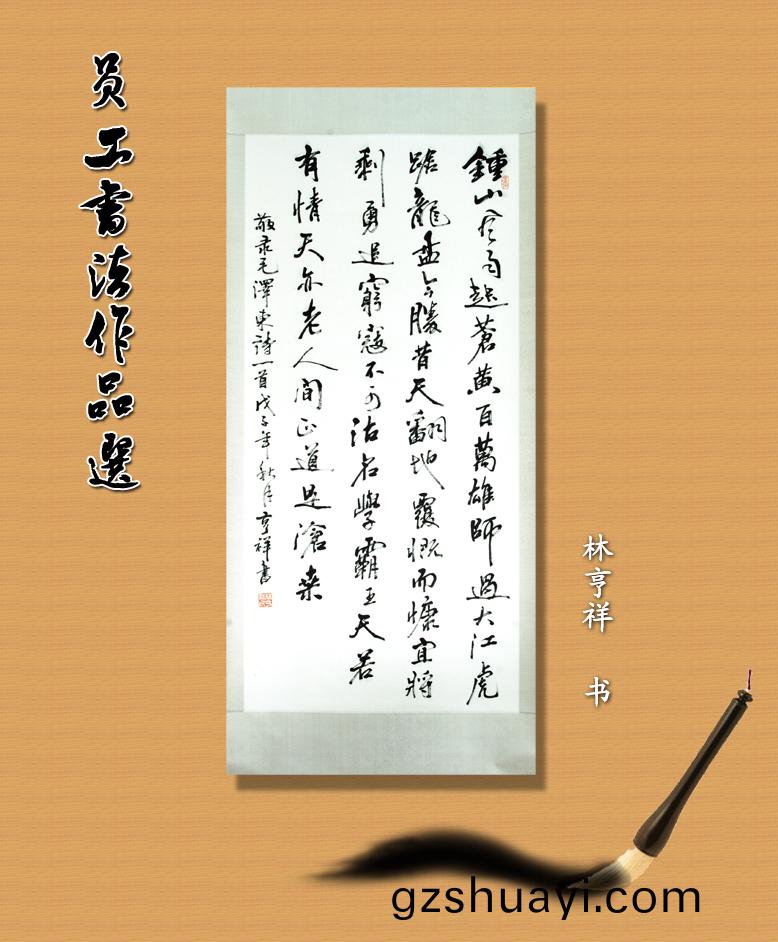 员工書法作品選
鍾山风雨起蒼黄百萬雄師過大江虎
踞龍盘今勝昔天翻地覆慨而慷宜將
剩勇追窮寇不可沽名學霸王天若
有情天亦老人间正道是滄桑
敬录毛澤東詩一首戊子年秋月亨祥書
林亨祥 书
gzshuayi.com